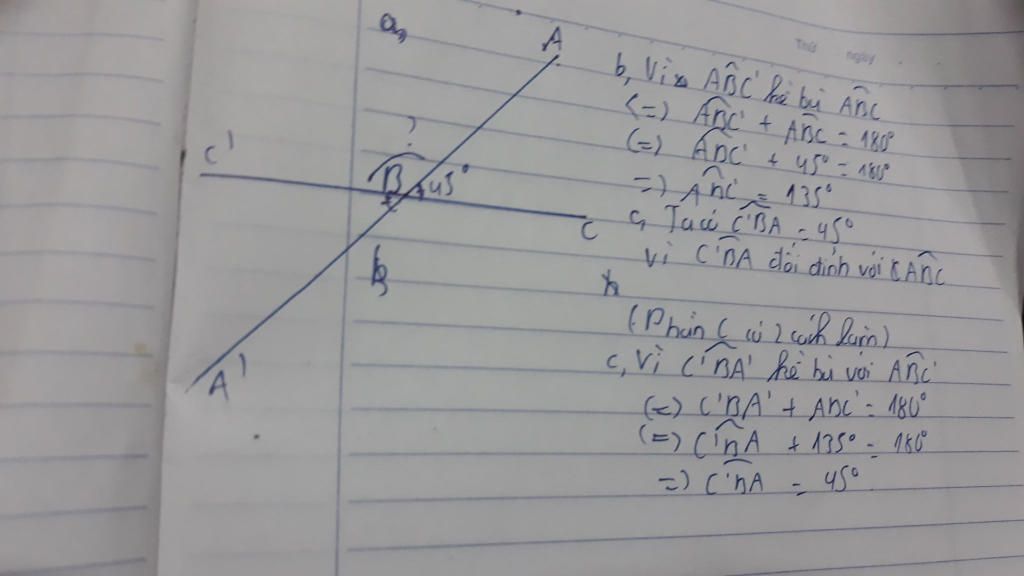 a,
A
Thứ ngày
C'
?
B
45°
C
A'
b, Vì ABC' kề bù ABC
(=) ABC' + ABC = 180°
(=) ABC' + 45° = 180°
=) ABC' = 135°
c, Ta có C'BA = 45°
vì C'BA đối đỉnh với ABC
(Phần c có 2 cách làm)
c, Vì C'BA' kề bù với ABC'
(=) C'BA' + ABC' = 180°
(=) C'BA + 135° = 180°
=) C'BA = 45°